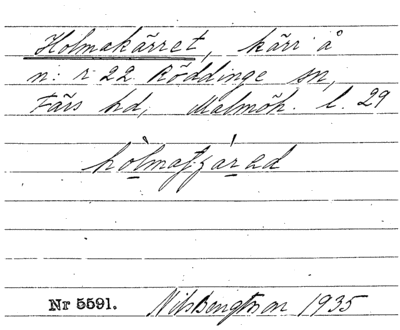 Holmakärret, kärr å
n:r 22 Röddinge sn,
Färs hd, Malmöh. l. 29
hòlmatjárad
Nr 5591. Nils Bengtsson 1935